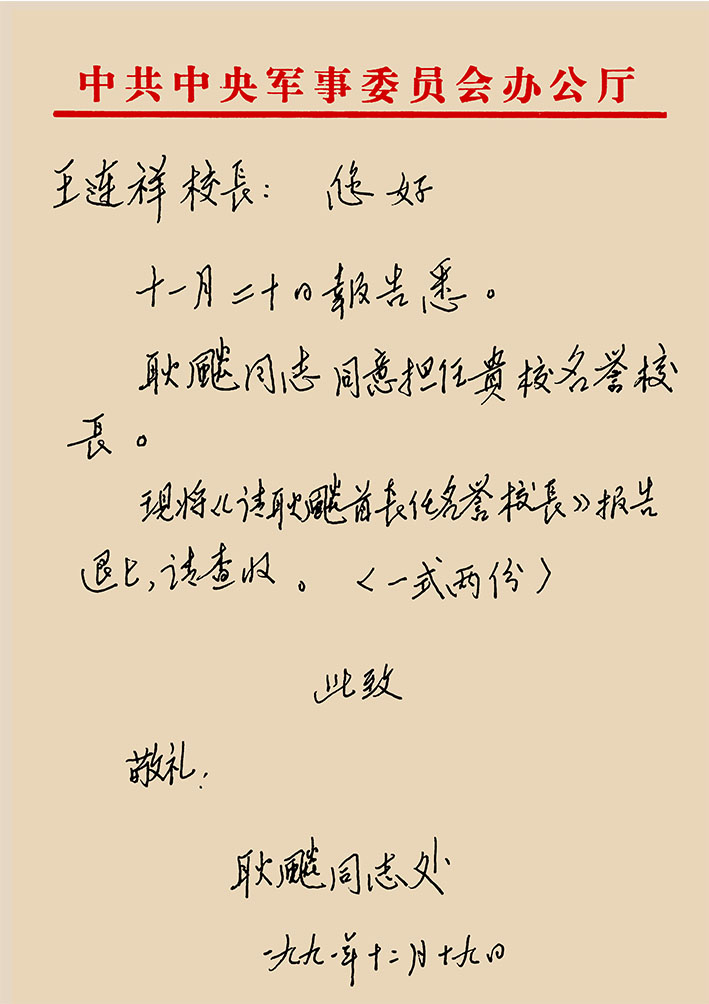 中共中央军事委员会办公厅
王连祥校長：您好
十一月二十日報告悉。
耿飚同志同意担任貴校名誉校
長。
现将《请耿飚首长任名誉校長》报告
退上，请查收。〈一式两份〉
此致
敬礼！
耿飚同志处
一九九一年十二月十九日